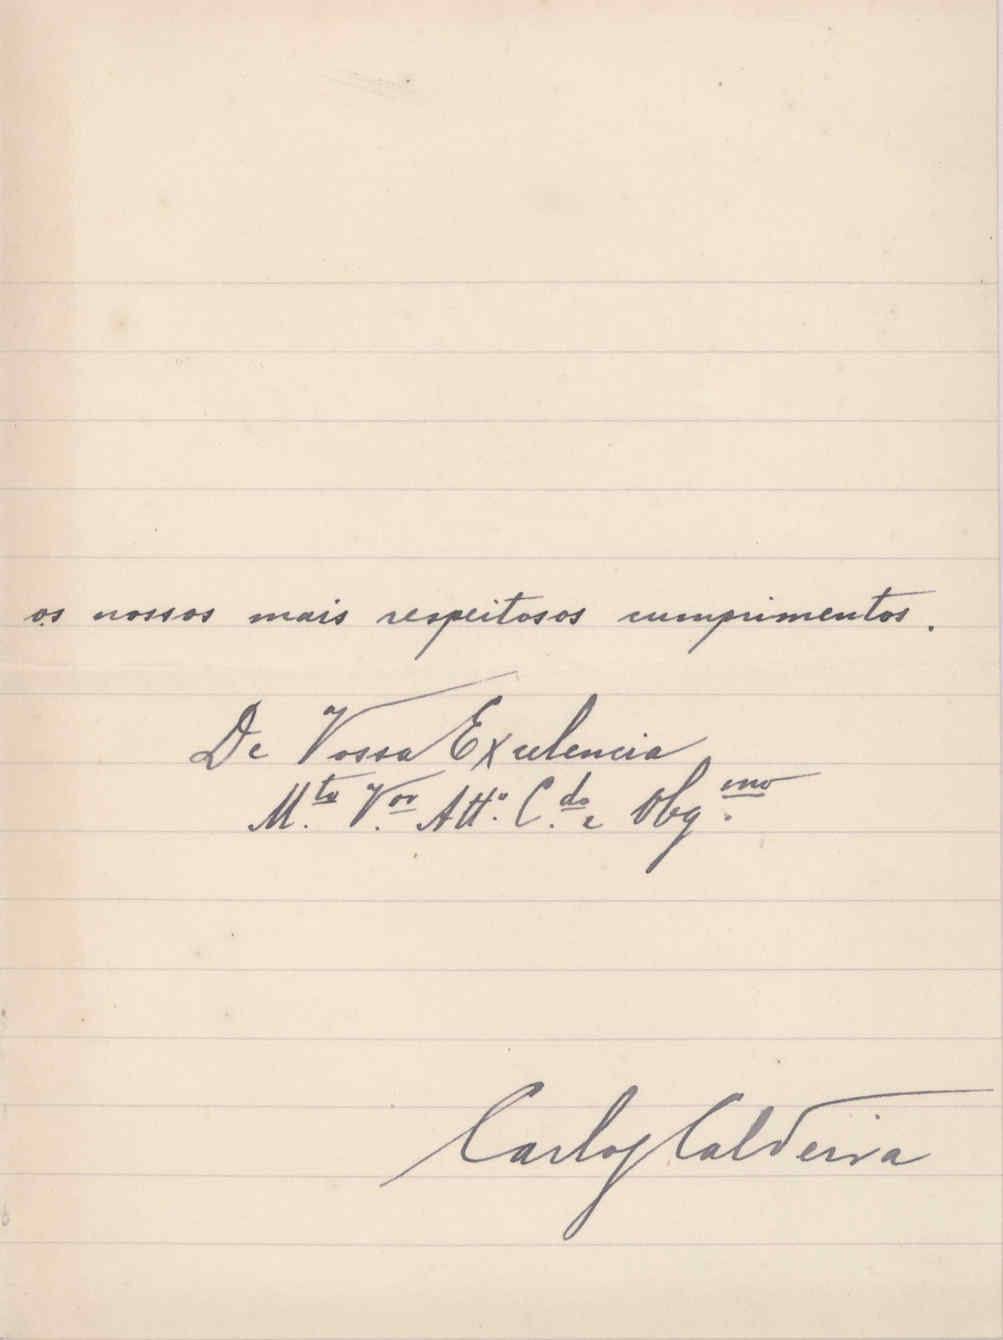 os nossos mais respeitosos cumprimentos.
De Vossa Excelencia
M.to V.or Att.º C.do e Obg.mo
Carlos Caldeira